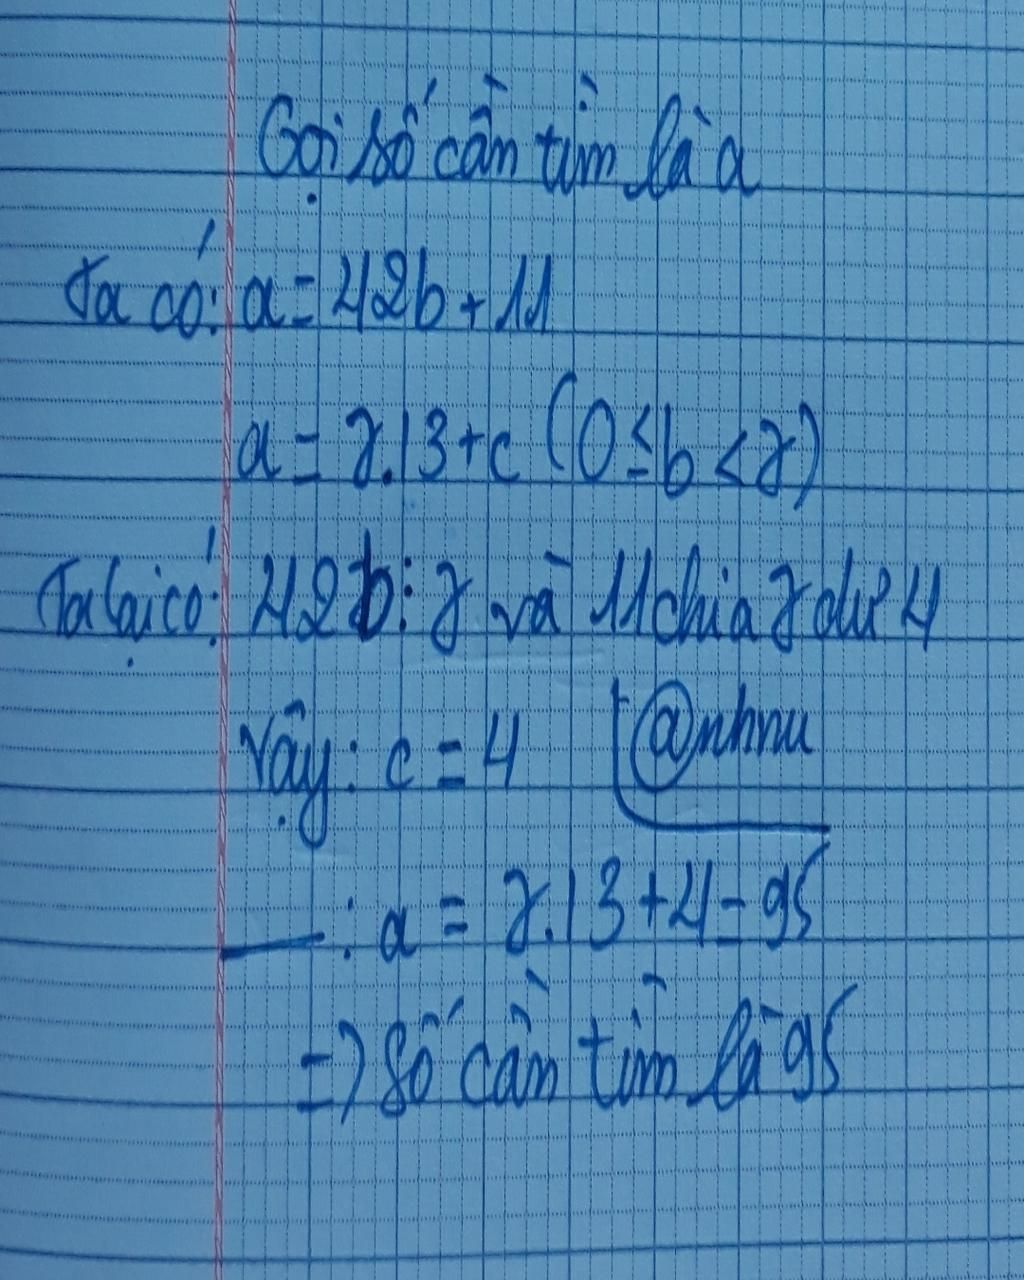 Gọi số cần tìm là a
Ta có: a = 42b + 11
a = 7.13 + c (0 ≤ b < 7)
Ta lại có: 42b ⋮ 7 và 11 chia 7 dư 4
Vậy: c = 4
@nhnu
— : a = 7.13 + 4 = 95
=> Số cần tìm là 95